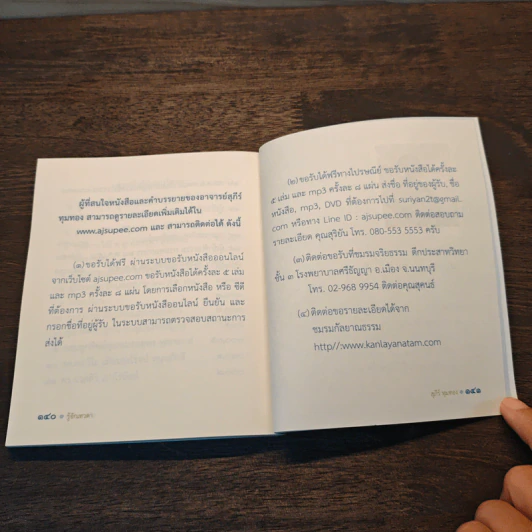 ผู้ที่สนใจหนังสือและคำบรรยายของอาจารย์สุภีร์
ทุมทอง สามารถดูรายละเอียดเพิ่มเติมได้ใน
www.ajsupee.com และ สามารถติดต่อได้ ดังนี้
(๑) ขอรับได้ฟรี ผ่านระบบขอรับหนังสือออนไลน์
จากเว็บไซต์ ajsupee.com ขอรับหนังสือได้ครั้งละ ๕ เล่ม
และ mp3 ครั้งละ ๘ แผ่น โดยการเลือกหนังสือ หรือ ซีดี
ที่ต้องการ ผ่านระบบขอรับหนังสือออนไลน์ ยืนยัน และ
กรอกชื่อที่อยู่ผู้รับ ในระบบสามารถตรวจสอบสถานะการ
ส่งได้
๑๔๐
(๒) ขอรับได้ฟรีทางไปรษณีย์ ขอรับหนังสือได้ครั้งละ
๕ เล่ม และ mp3 ครั้งละ ๘ แผ่น ส่งชื่อ ที่อยู่ของผู้รับ, ชื่อ
หนังสือ, mp3, DVD ที่ต้องการไปที่ suriyan2t@gmail.
com หรือทาง Line ID : ajsupee.com ติดต่อสอบถาม
รายละเอียด คุณสุริยัน โทร. 080-553 5553 ครับ
(๓) ติดต่อขอรับที่ชมรมจริยธรรม ตึกประสาทวิทยา
ชั้น ๑ โรงพยาบาลศรีธัญญา อ.เมือง จ.นนทบุรี
โทร. 02-968 9954 ติดต่อคุณสุคนธ์
(๔) ติดต่อขอรายละเอียดได้จาก
ชมรมกัลยาณธรรม
http//:www.kanlayanatam.com
สุภีร์ ทุมทอง ๑๔๑